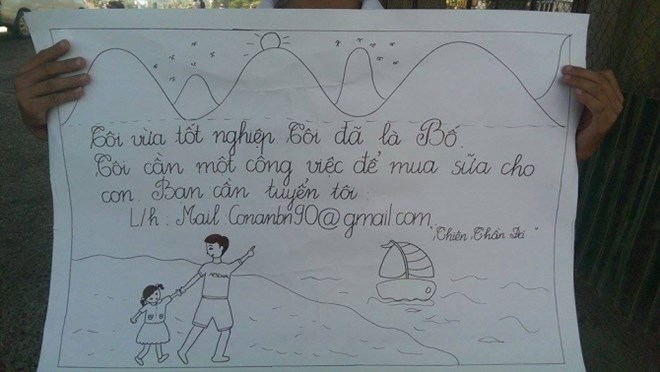 Tôi vừa tốt nghiệp Tôi đã là Bố.
Tôi cần một công việc để mua sữa cho
con Bạn cần tuyển tôi
L/h: Mail Conanbn90@gmail.com
"Thiên Thần Đá"